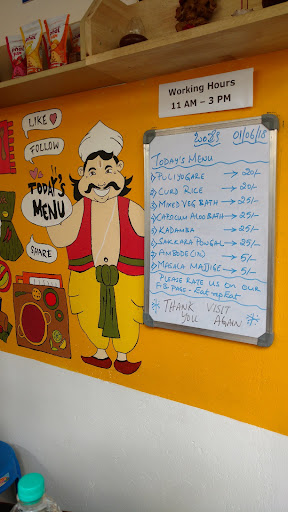 LIKE
FOLLOW
TODAY'S
MENU
SHARE
Working Hours
11 AM – 3 PM
01/06/18
TODAY'S MENU
PULIYOGARE → 20/-
CURD RICE → 20/-
MIXED VEG BATH → 25/-
CAPSICUM ALOO BATH → 25/-
KADAMBA → 25/-
SAKKARA PONGAL → 25/-
AMBODE (1N) → 5/-
MASALA MAJJGE → 5/-
PLEASE RATE US ON OUR
F.B PAGE - Eat n repEat
* THANK VISIT *
YOU AGAIN